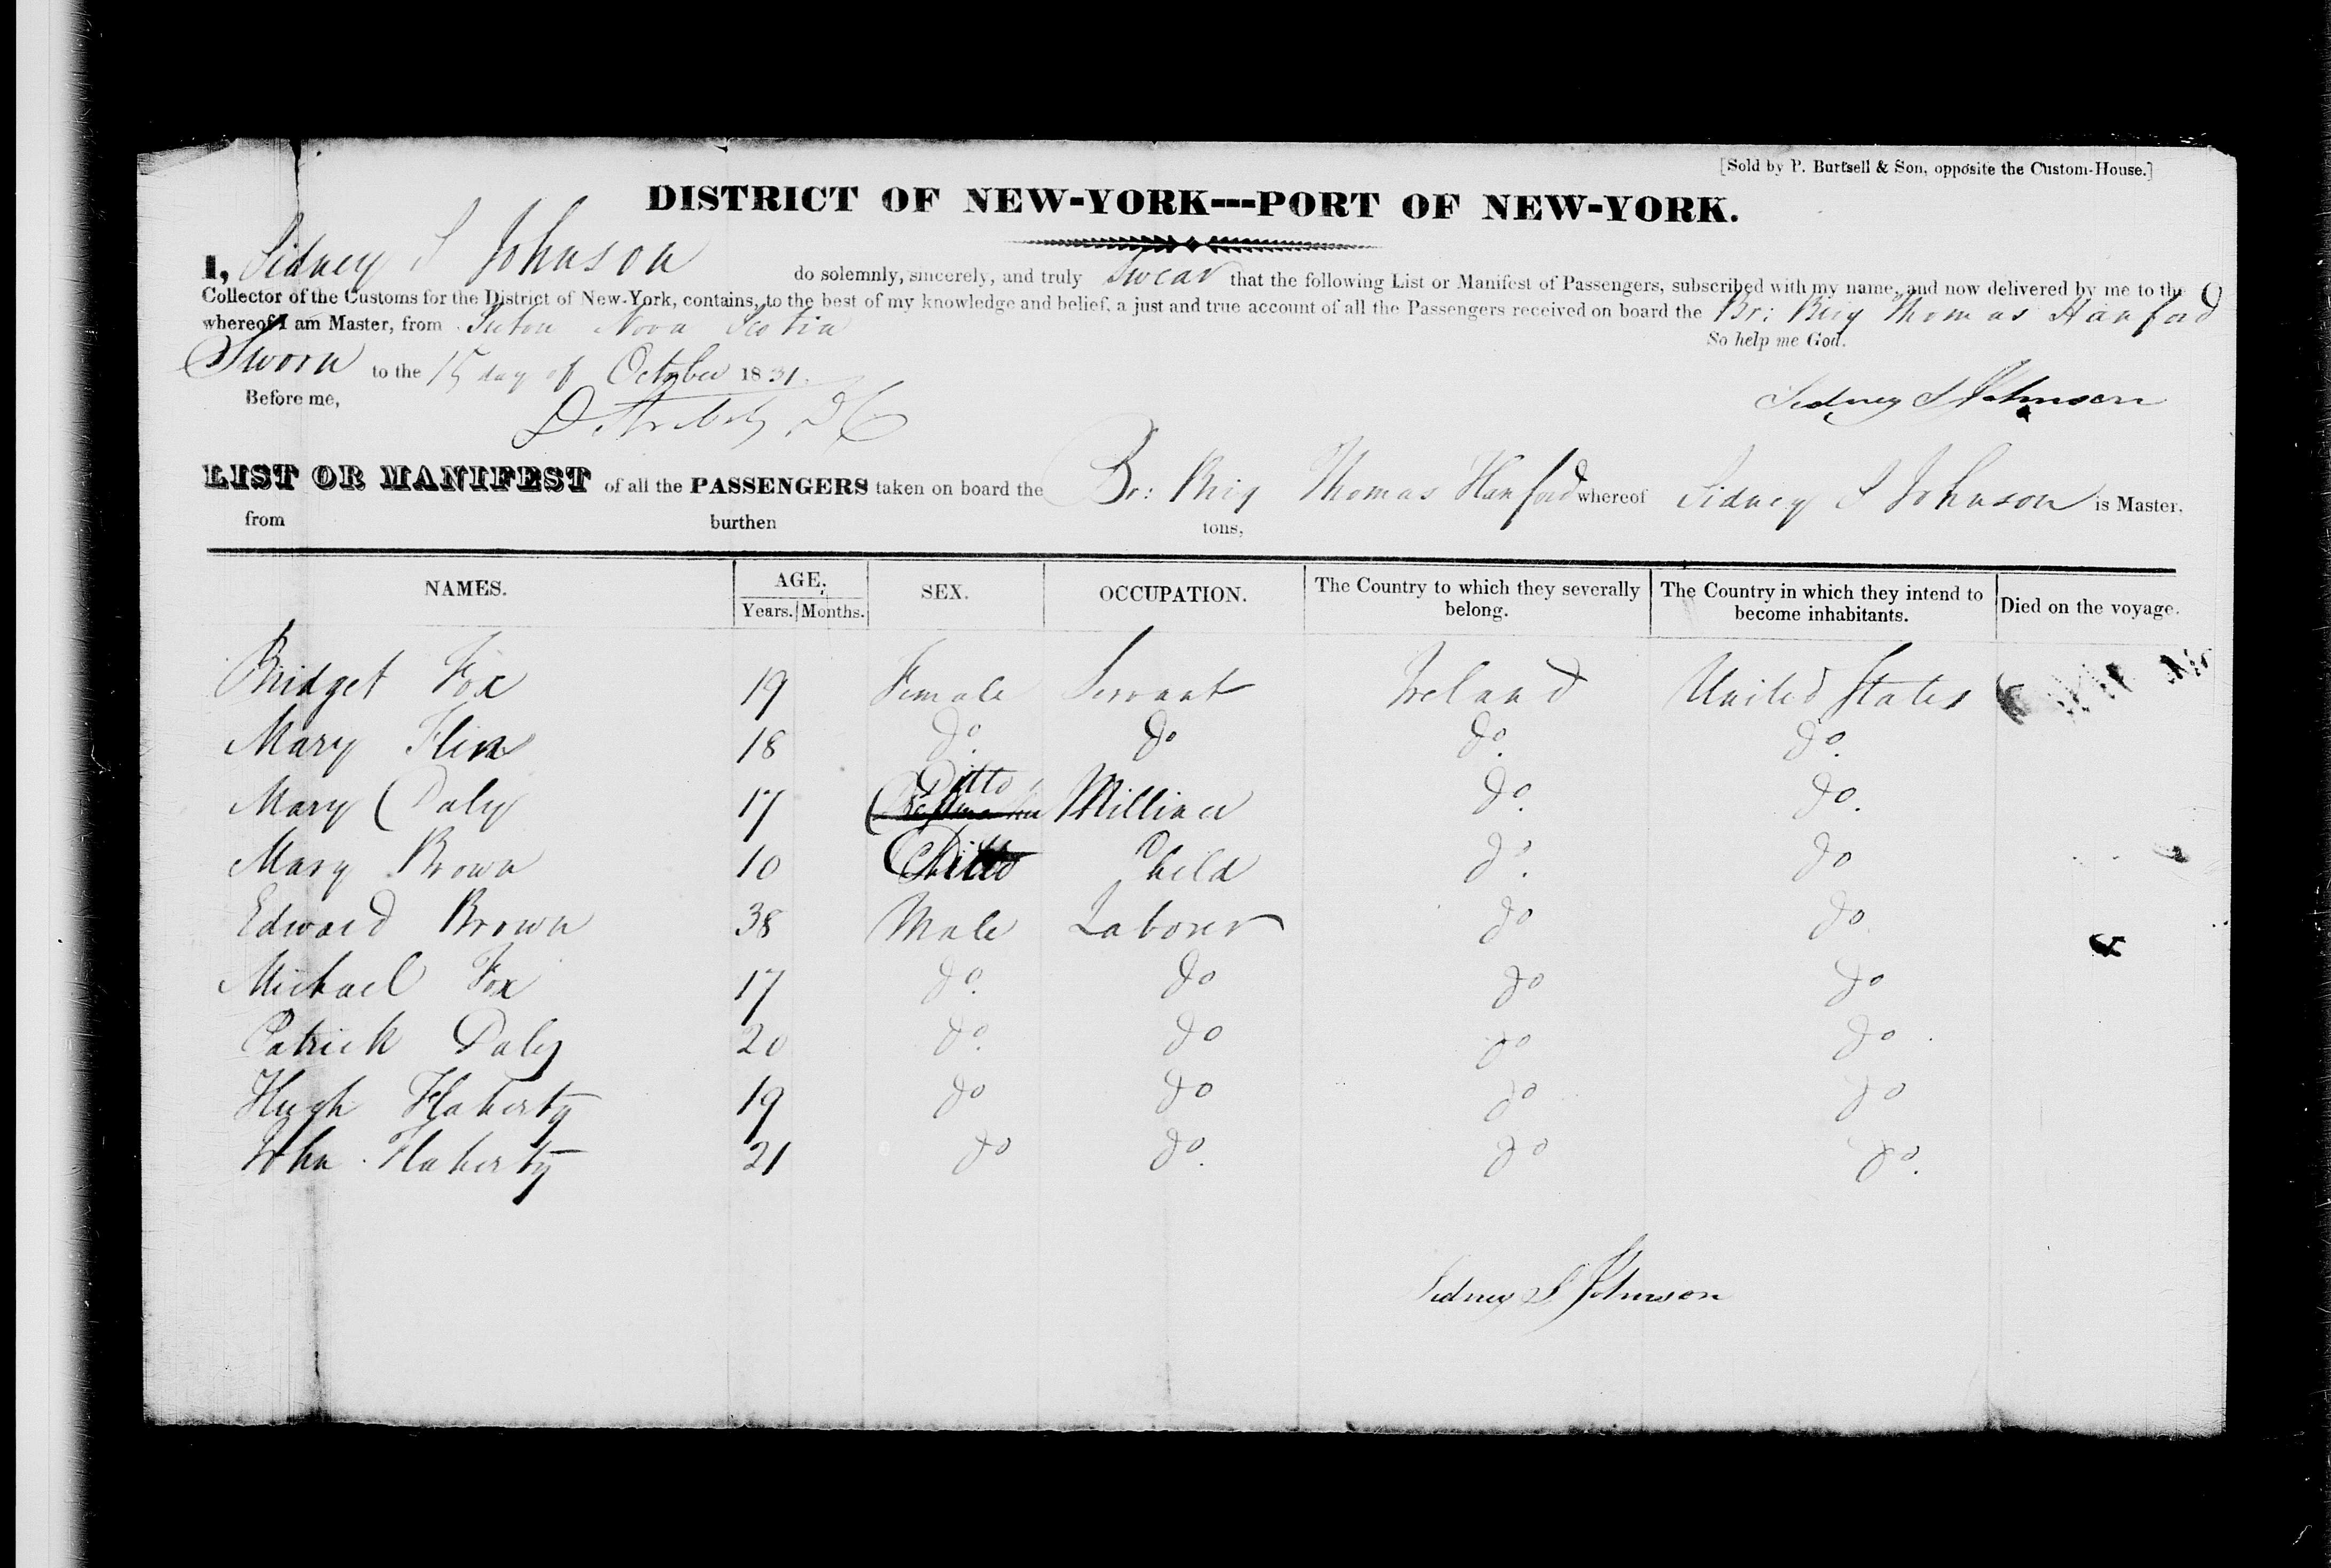 [Sold by P. Burtsell & Son, opposite the Custom-House.]
DISTRICT OF NEW-YORK---PORT OF NEW-YORK.
I, Sidney S Johnson do solemnly, sincerely, and truly Swear that the following List or Manifest of Passengers, subscribed with my name, and now delivered by me to the
Collector of the Customs for the District of New-York, contains, to the best of my knowledge and belief, a just and true account of all the Passengers received on board the Br: Brig Thomas Hanford
whereof I am Master, from Nova Scotia
So help me God.
Sworn to the 15 day of October 1831.
Before me,
Sidney S Johnson
LIST OR MANIFEST of all the PASSENGERS taken on board the Br: Brig Thomas Hanford whereof Sidney S Johnson is Master,
from burthen tons,
NAMES. AGE. SEX. OCCUPATION. The Country to which they severally belong. The Country in which they intend to become inhabitants. Died on the voyage.
Years. Months.
Bridget Fox 19 Female Servant Ireland United States
Mary Flinn 18 do. do do. do.
Mary Daly 17 Ditto Milliner do. do.
Mary Brown 10 Ditto Child do. do
Edward Brown 38 Male Laborer do do
Michael Fox 17 do. do do do
Patrick Daly 20 do. do do do
Hugh Flaherty 19 do do do do
John Flaherty 21 do do. do do.
Sidney S Johnson